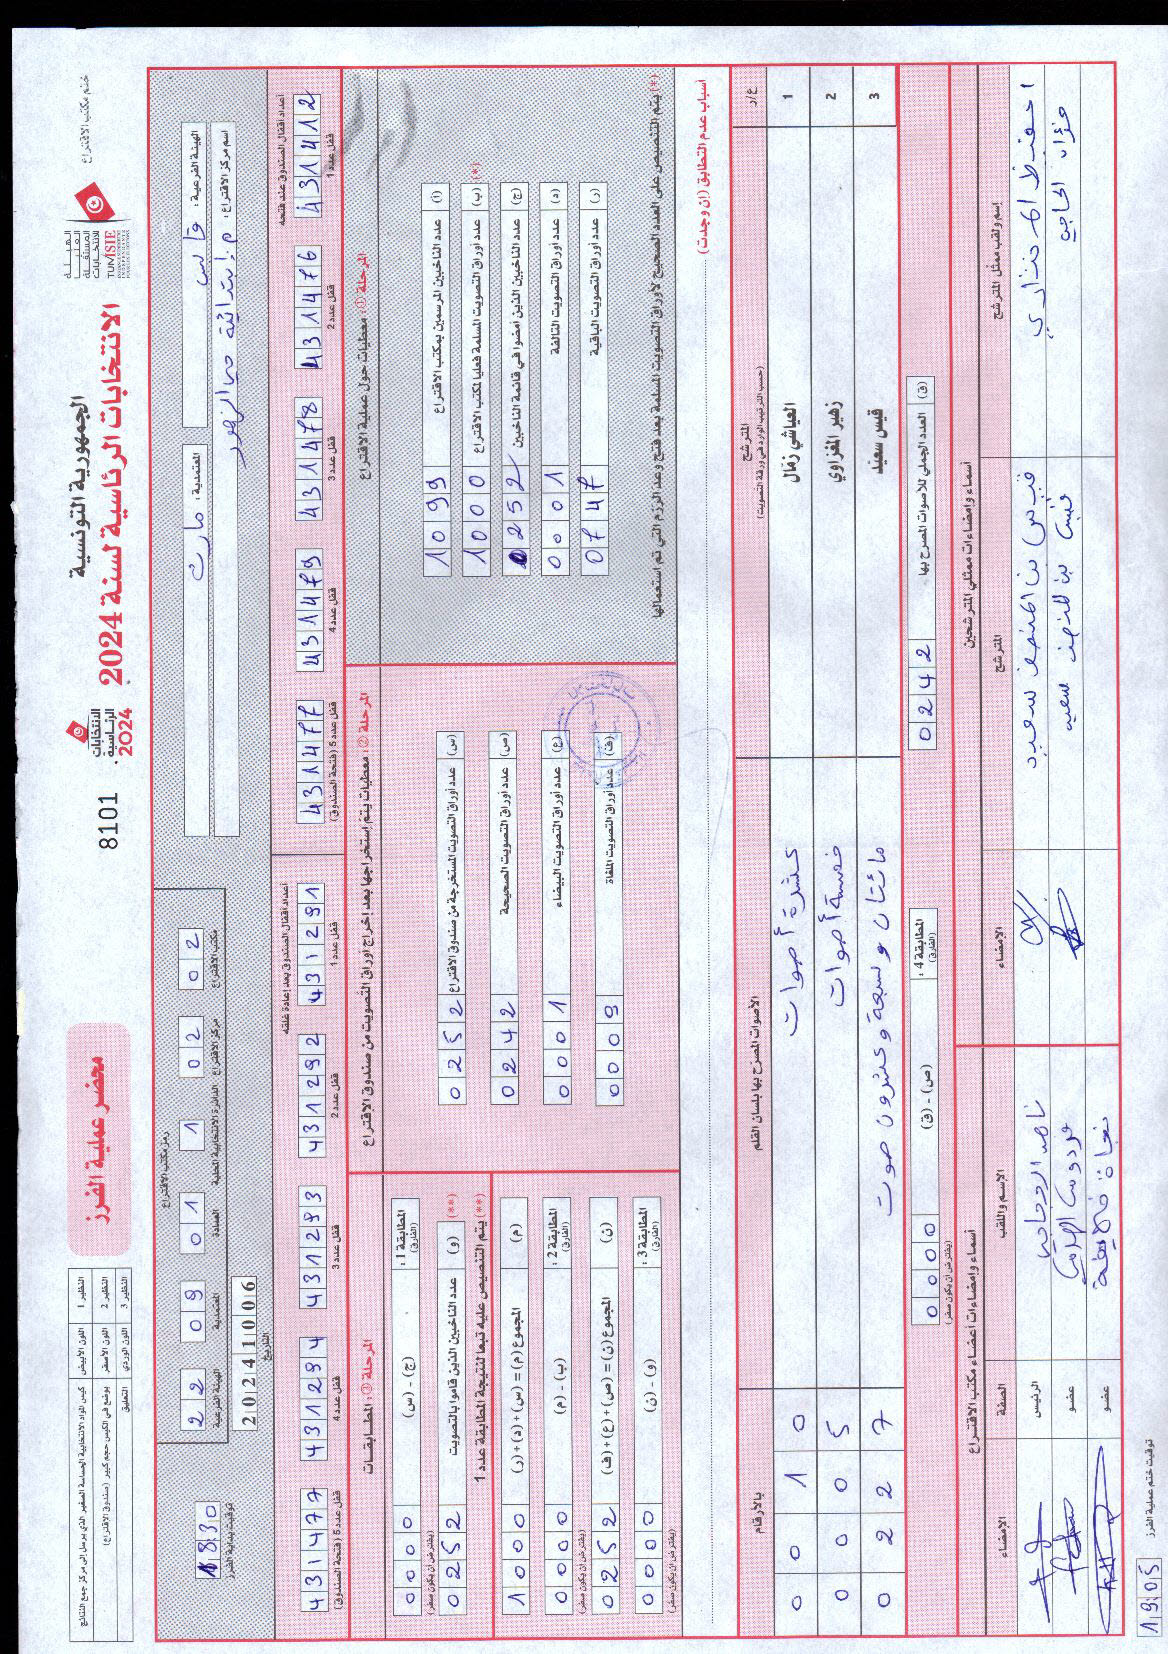 الجمهورية التونسية
الانتخابات الرئاسية لسنة 2024
الهيئة العليا المستقلة للانتخابات
TUNISIE
ختم مكتب الاقتراع
الانتخابات الرئاسية 2024
8101
محضر عملية الفرز
النظير 1 اللون الأبيض كيس المواد الانتخابية الحساسة الصغير الذي يرسل إلى مركز جمع النتائج
النظير 2 اللون الأصفر يوضع في الكيس حجم كبير (صندوق الاقتراع)
النظير 3 اللون الوردي التعليق
الهيئة الفرعية: قابس
المعتمدية: مارث
اسم مركز الاقتراع: م. إبتدائية حي الزهور
رمز مكتب الاقتراع
22 09 01 1 02 02
الهيئة الفرعية المعتمدية العمادة الدائرة الانتخابية المحلية مركز الاقتراع مكتب الاقتراع
20241006
التاريخ
1830
توقيت بداية الفرز
أعداد أقفال الصندوق عند فتحه
قفل عدد 1 431412
قفل عدد 2 431476
قفل عدد 3 431478
قفل عدد 4 431479
قفل عدد 5 (فتحة الصندوق) 431477
أعداد أقفال الصندوق بعد إعادة غلقه
قفل عدد 1 431291
قفل عدد 2 431292
قفل عدد 3 431293
قفل عدد 4 431294
قفل عدد 5 (فتحة الصندوق) 431477
المرحلة ①: معطيات حول عملية الاقتراع
(أ) عدد الناخبين المرسمين بمكتب الاقتراع 1099
(ب) عدد أوراق التصويت المسلمة فعليا لمكتب الاقتراع 1000 (*)
(ج) عدد الناخبين الذين امضوا في قائمة الناخبين 0252
(د) عدد أوراق التصويت التالفة 0001
(ر) عدد أوراق التصويت الباقية 0747
(*) يتم التنصيص على العدد الصحيح لأوراق التصويت المسلمة بعد فتح وعد الرزم التي تم استعمالها
المرحلة ②: معطيات يتم إستخراجها بعد إخراج أوراق التصويت من صندوق الاقتراع
(س) عدد أوراق التصويت المستخرجة من صندوق الاقتراع 0252
(ص) عدد أوراق التصويت الصحيحة 0242
(ع) عدد أوراق التصويت البيضاء 0001
(ف) عدد أوراق التصويت الملغاة 0009
المرحلة ③: المطابقات
المطابقة 1: (الفارق) (ج) - (س) 0000 (يفترض أن يكون صفر)
(**) (و) عدد الناخبين الذين قاموا بالتصويت 0252
(**) يتم التنصيص عليه تبعا لنتيجة المطابقة عدد 1
(م) المجموع (م) = (س) + (د) + (ر) 1000
المطابقة 2: (الفارق) (ب) - (م) 0000 (يفترض أن يكون صفر)
(ن) المجموع (ن) = (ص) + (ع) + (ف) 0252
المطابقة 3: (الفارق) (و) - (ن) 0000 (يفترض أن يكون صفر)
أسباب عدم التطابق (إن وجدت)
ع/ر المترشح (حسب الترتيب الوارد في ورقة التصويت) الأصوات المصرح بها بلسان القلم بالأرقام
1 العياشي زمّال عشرة أصوات 0010
2 زهير المغزاوي خمسة أصوات 0005
3 قيس سعيد مائتان وسبعة وعشرون صوت 0227
(ق) العدد الجملي للأصوات المصرح بها 0242
المطابقة 4: (الفارق) (ص) - (ق) 0000 (يفترض أن يكون صفر)
أسماء وإمضاءات ممثلي المترشحين
إسم ولقب ممثل المترشح المترشح الإمضاء
قيس بن المنصف سعيد
قيس بن المنصف سعيد
أسماء وإمضاءات أعضاء مكتب الاقتراع
الإسم واللقب الصفة الإمضاء
الرئيس
عضو
عضو
توقيت ختم عملية الفرز
1905